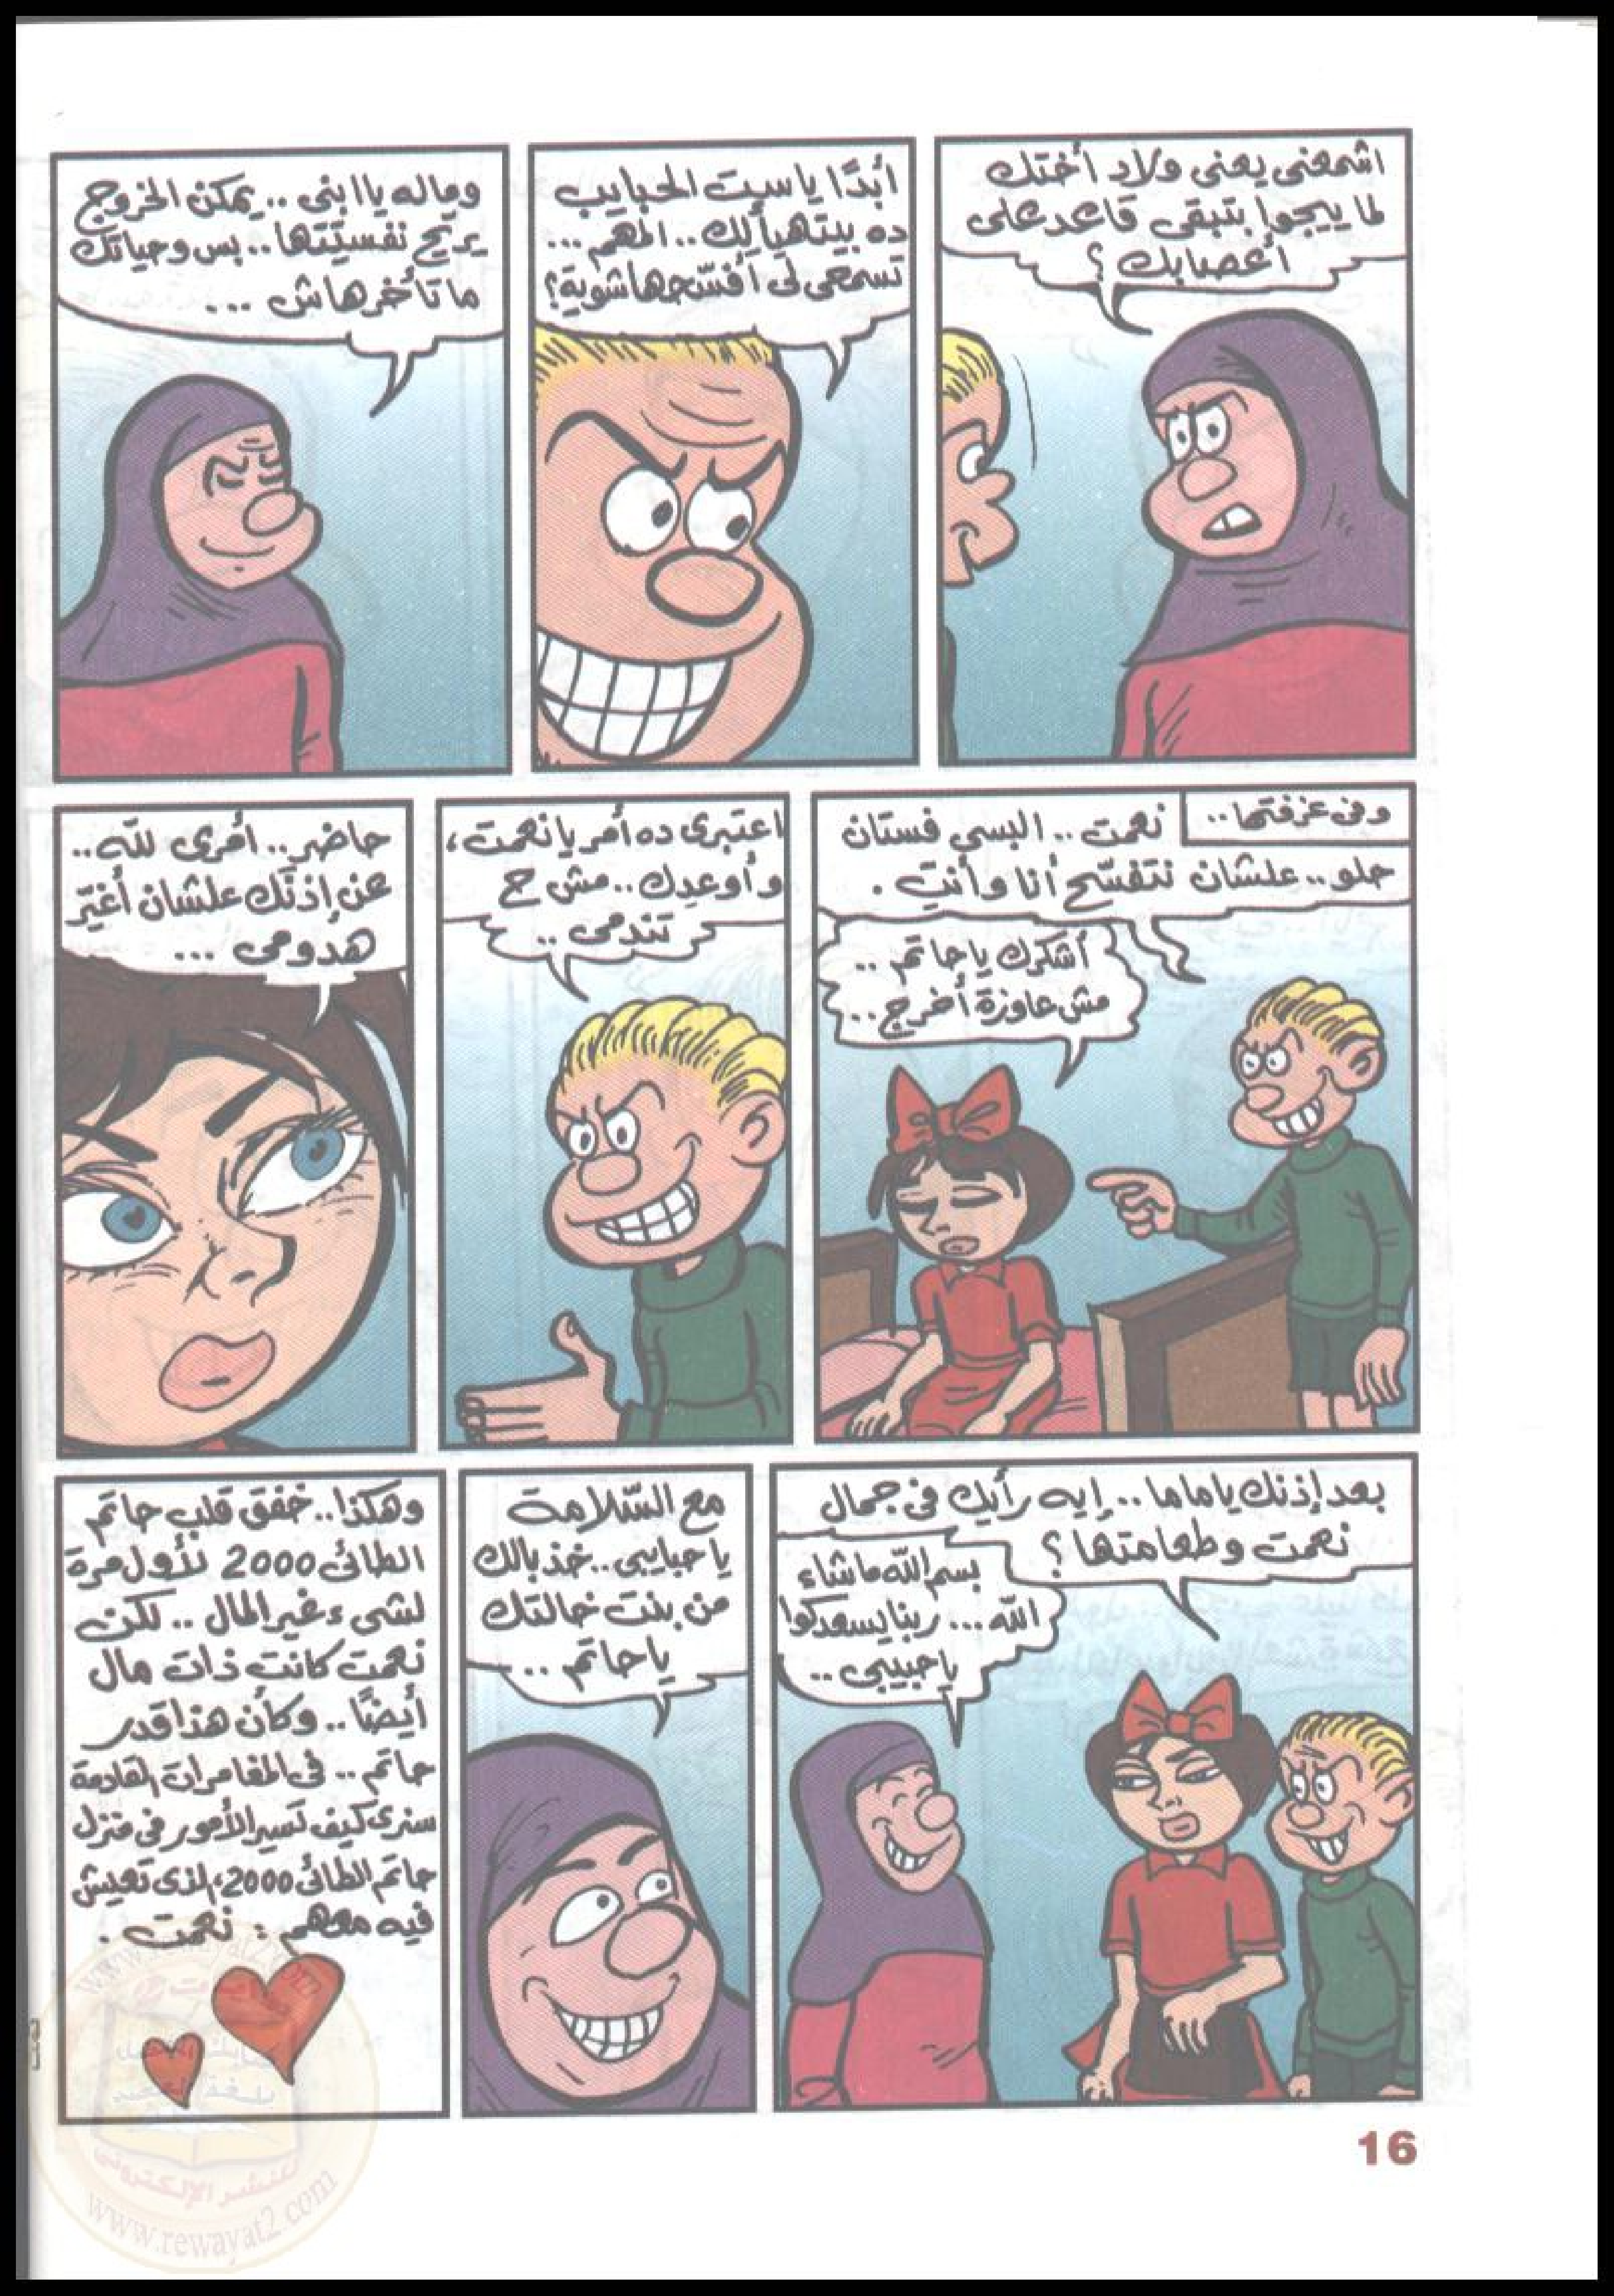 اشمعنى يعنى ولاد أختك
لما ييجوا بتبقى قاعد على
أعصابك ؟
أبدًا يا ست الحبايب
ده بيتهيألك .. المهم ...
تسمحى لى أفسّحها شوية ؟
وماله يا ابنى .. يمكن الخروج
يريّح نفسيّتها .. بس وحياتك
ما تأخرهاش ...
وفى غرفتها ..
نعمت .. البسى فستان
حلو .. علشان نتفسّح أنا وأنتِ .
أشكرك يا حاتم ..
مش عاوزة أخرج ..
اعتبرى ده أمر يا نعمت ،
وأوعدك .. مش ح
تندمى ..
حاضر .. أمرى لله ..
عن إذنك علشان أغيّر
هدومى ...
بعد إذنك يا ماما .. إيه رأيك فى جمال
نعمت وطعامتها ؟
بسم الله ما شاء
الله ... ربنا يسعدكوا
يا حبيبى ..
مع السّلامة
يا حبايبى .. خذ بالك
من بنت خالتك
يا حاتم ..
وهكذا .. خفق قلب حاتم
الطائى 2000 لأول مرة
لشىء غير المال .. لكن
نعمت كانت ذات مال
أيضًا .. وكأن هذا قدر
حاتم .. فى المغامرات القادمة
سنرى كيف تسير الأمور فى منزل
حاتم الطائى 2000 ، الذى تعيش
فيه معهم : نعمت .
16
للنشر الإلكترونى
www.rewayat2.com